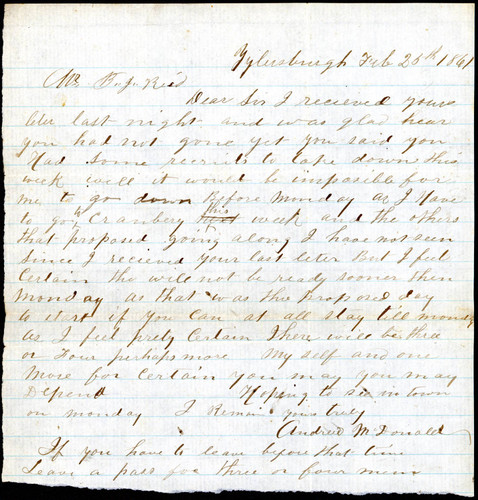 Tylersburgh Feb 26th 1861
Mr. F. P. Reid
Dear Sir I recieved yours
last night and was glad hear
you had not gone yet you said you
Had some recruits to take down this
week well it would be imposible for
me to go down Before Monday as I Have
to go Cranbery this week and the others
that proposed going along I have not seen
Since I recieved your last leter But I feel
Certain the will not be ready sooner then
Monday as that was the proposed day
to start if you can at all stay till monday
as I feel prety Certain There will be three
or Four perhaps more My self and one
More for Certain you may you may
Depend Hoping to see in town
on monday I Remain yours truly
Andrew McDonald
If you have to leave before that time
Leave a pass for three or four men